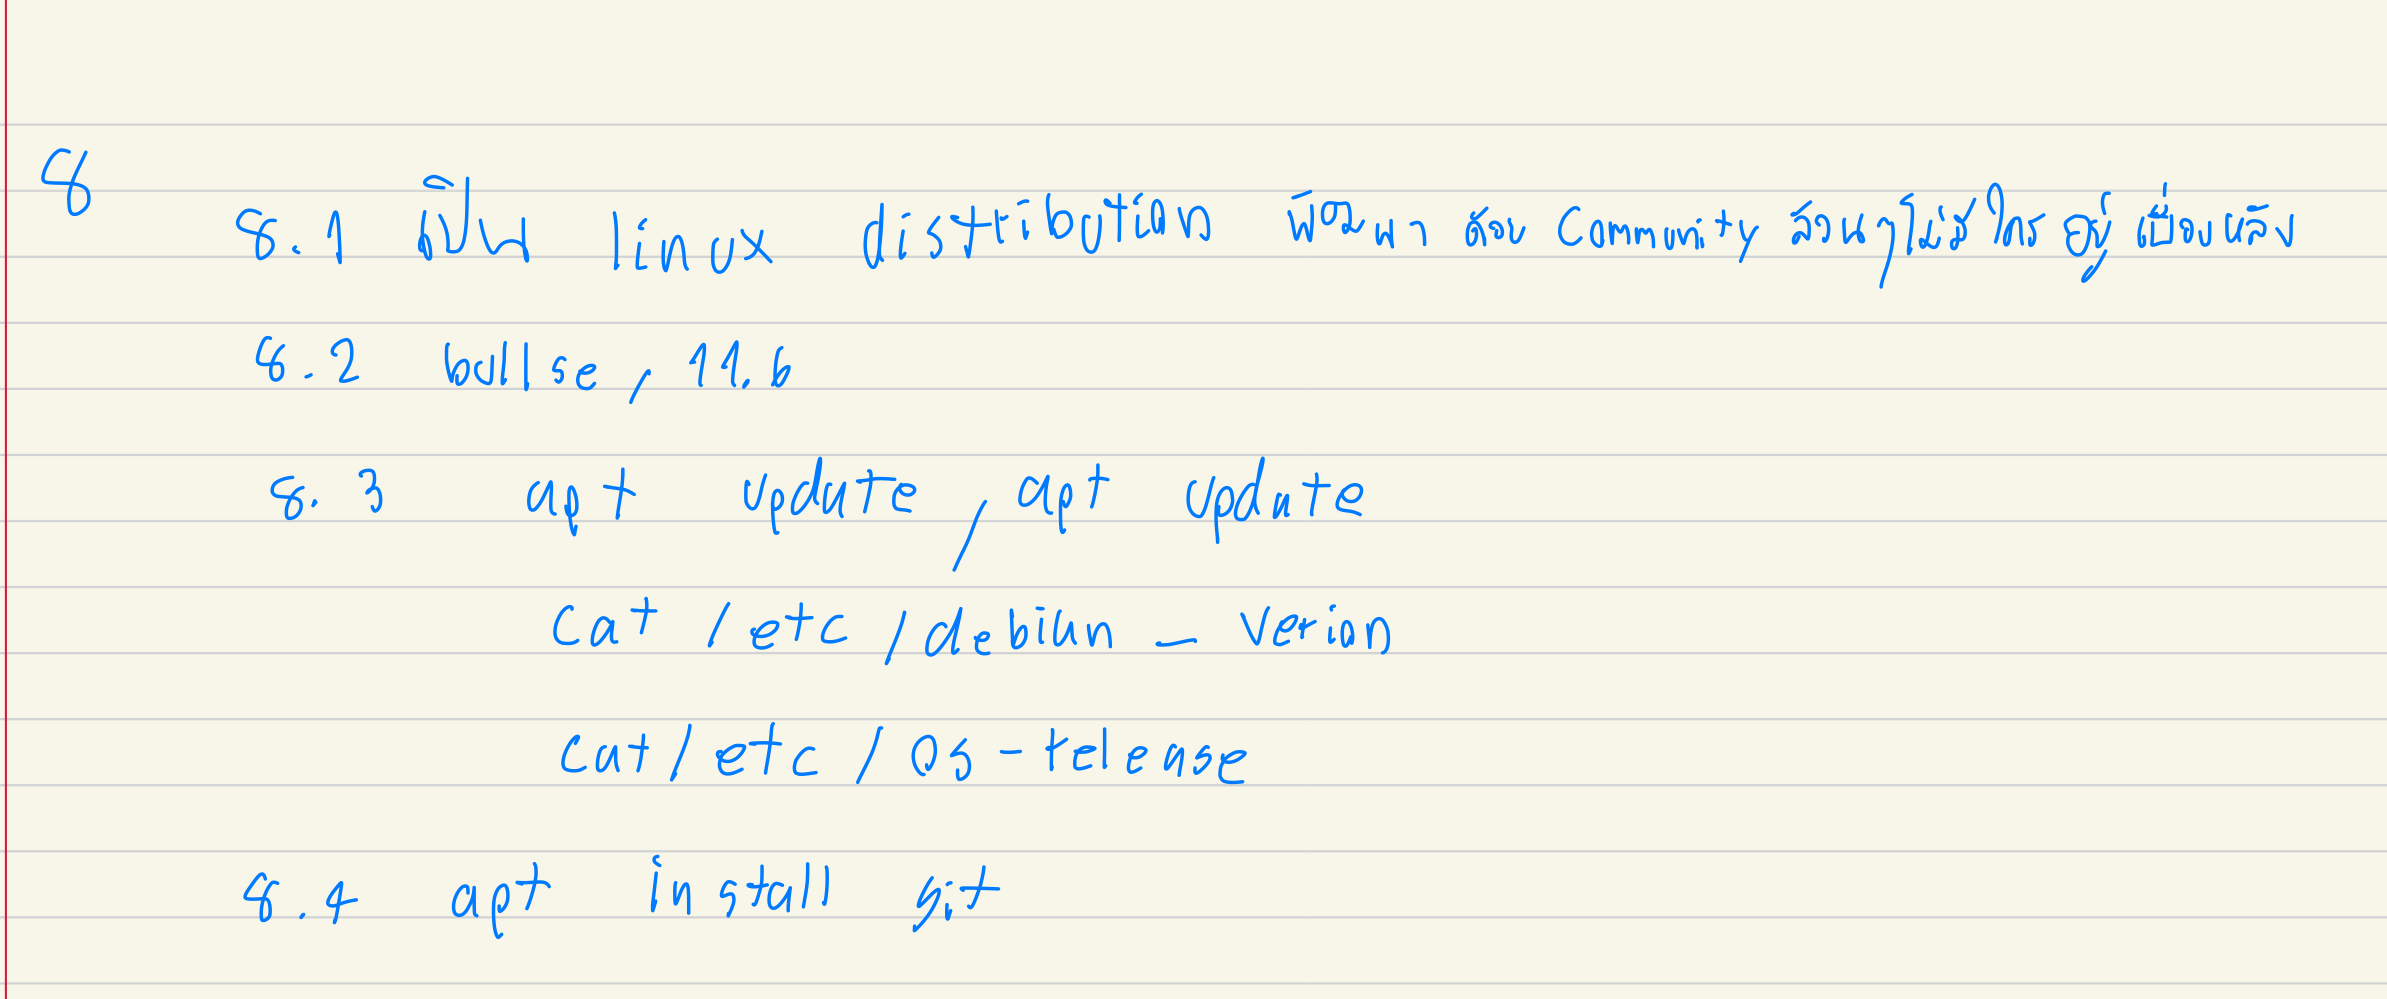 8
8.1 เป็น linux distribution พัฒนา ด้วย Community ล้วนๆไม่มี ใคร อยู่ เบื้องหลัง
8.2 bullse, 11.6
8.3 apt update, apt update
cat /etc/debian_verion
cat/etc/os-release
8.4 apt install git